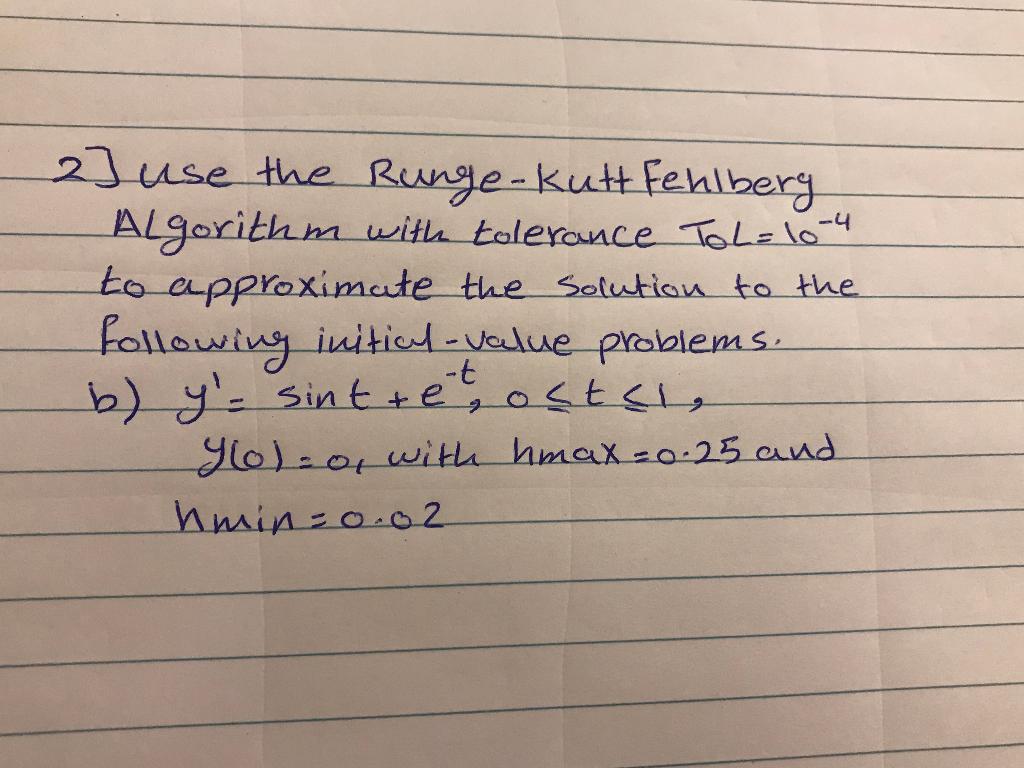 2] use the Runge-Kutt Fehlberg
ALgorithm with tolerance TOL=10⁻⁴
to approximate the solution to the
following initial-value problems.
b) y'= sint + e⁻ᵗ, 0≤t≤1,
y(0)=0, with hmax=0.25 and
hmin=0.02